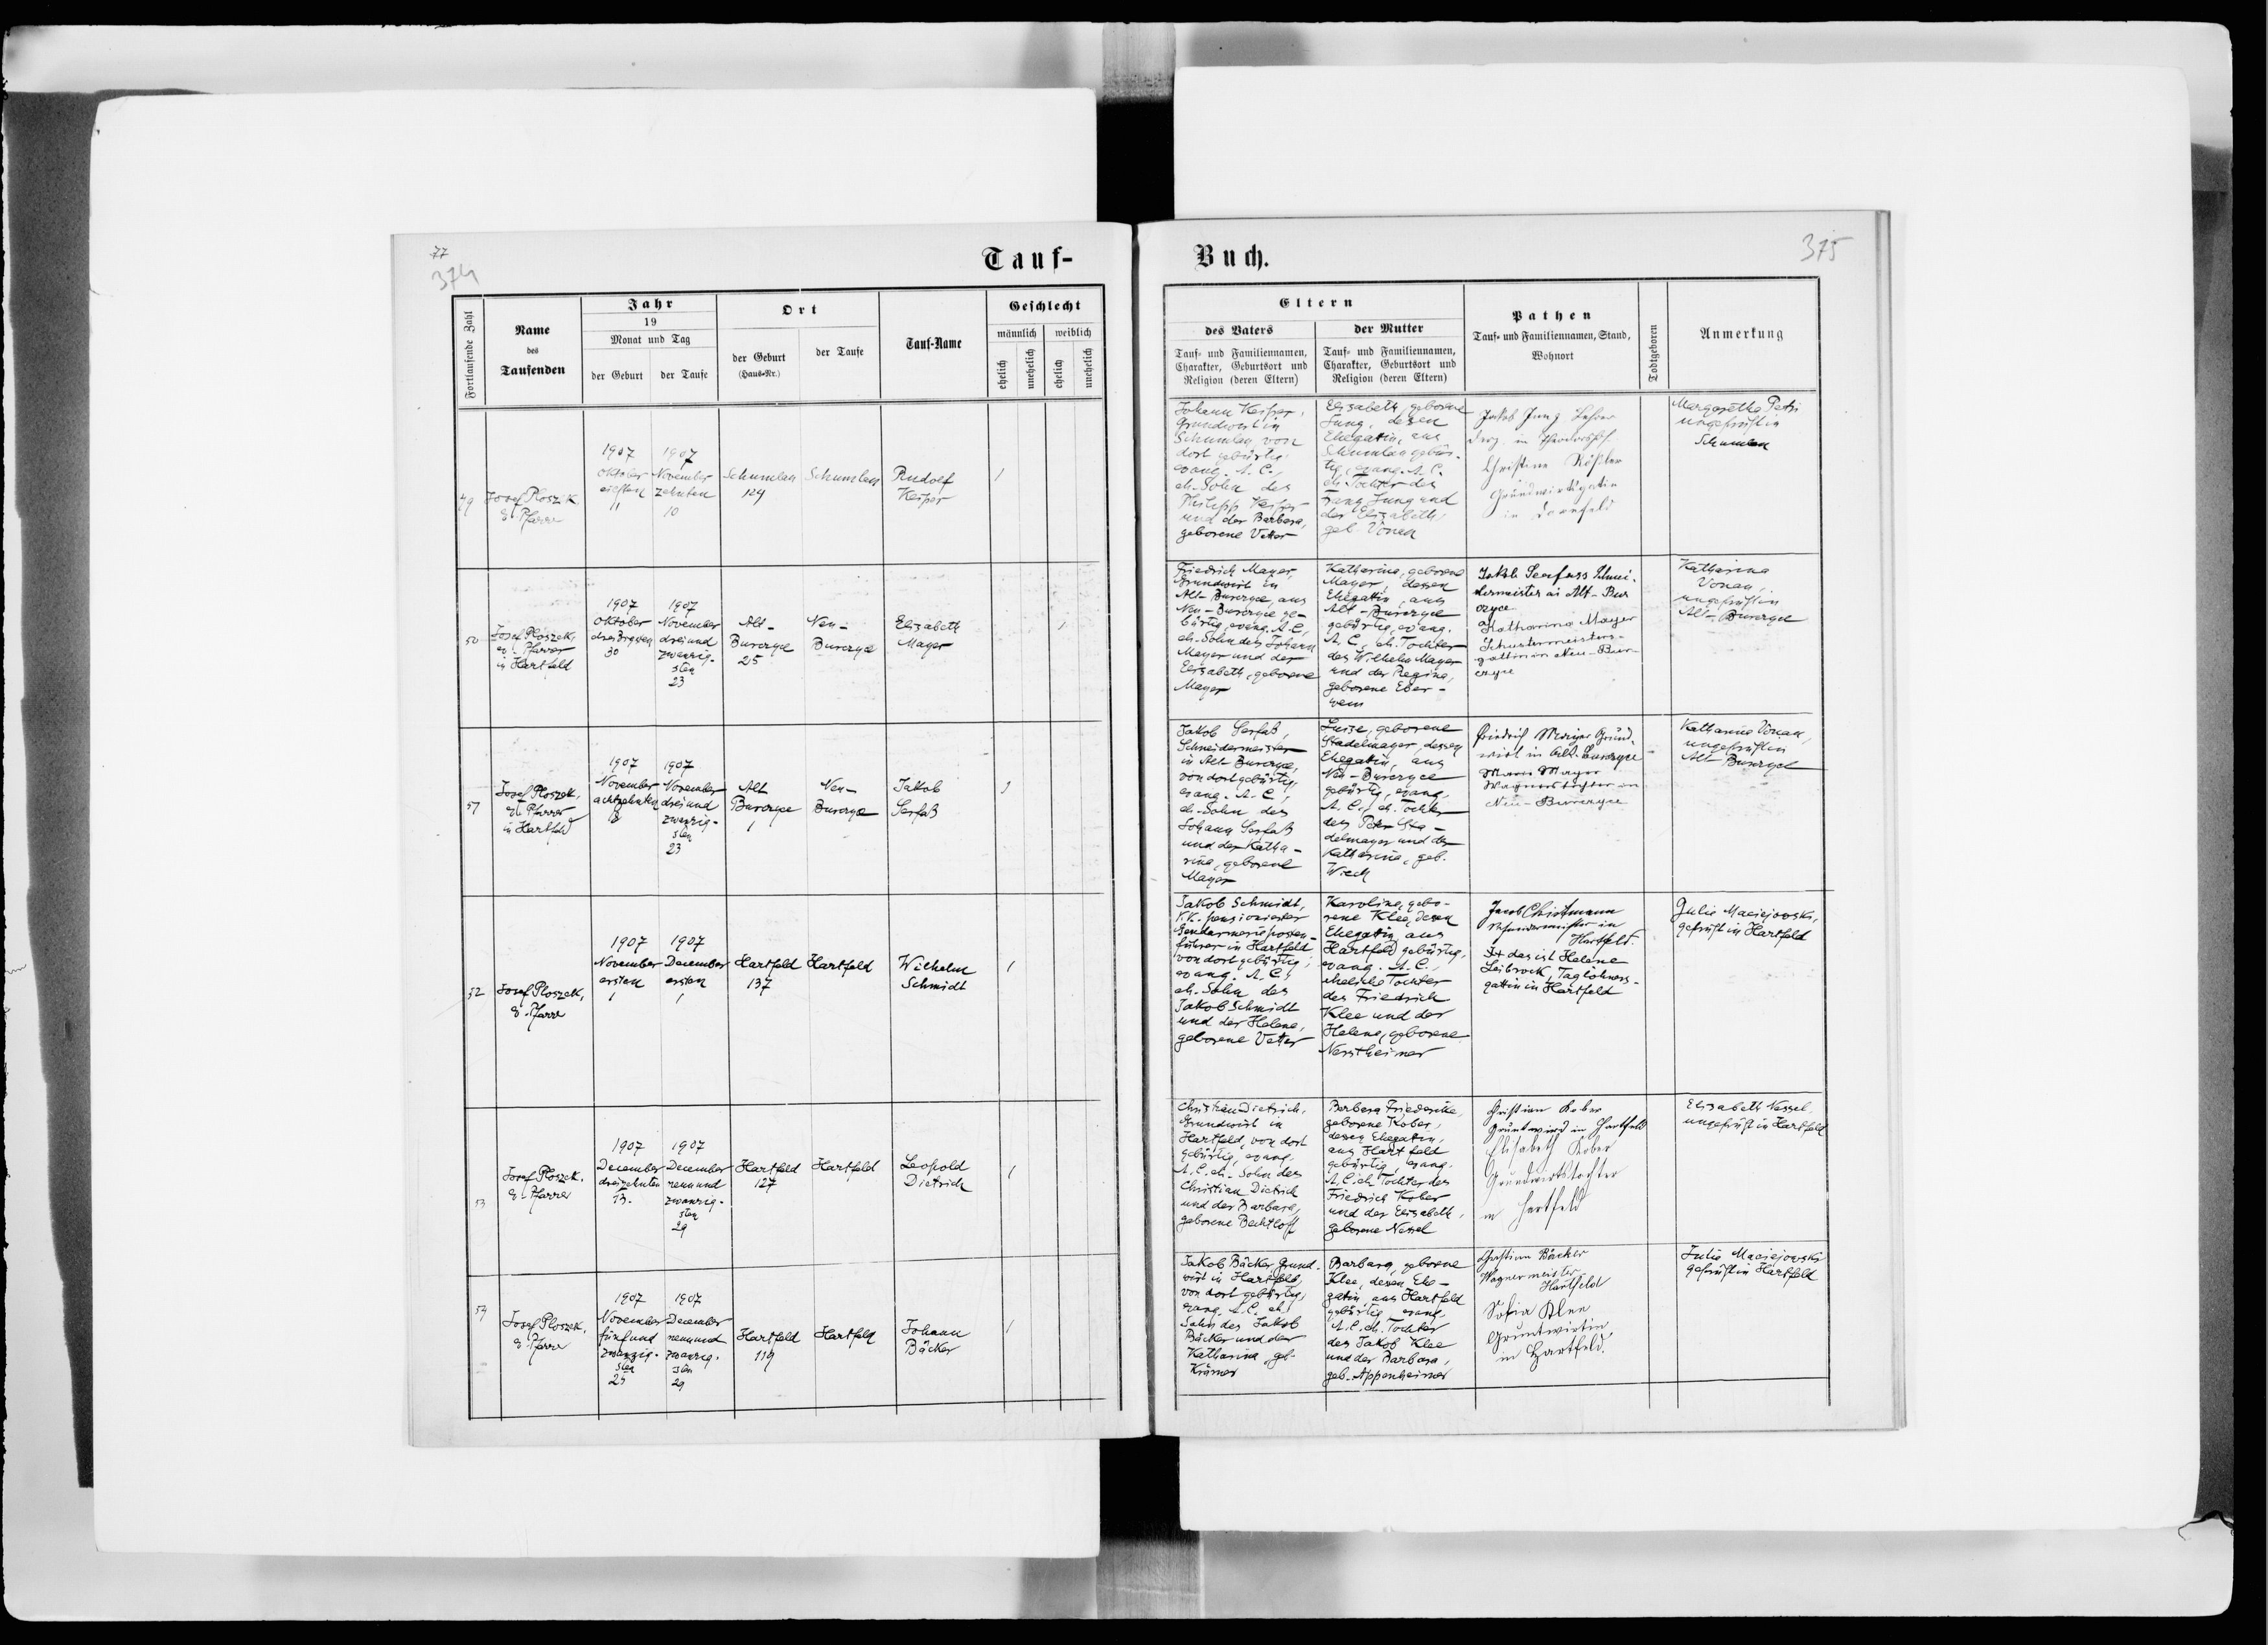 77
374
Tauf-
Fortlaufende Zahl
Name
des
Taufenden
Jahr
19
Monat und Tag
der Geburt
der Taufe
Ort
der Geburt
(Haus-Nr.)
der Taufe
Tauf-Name
Geschlecht
männlich
weiblich
ehelich
unehelich
ehelich
unehelich
49
Josef Ploszek,
e. Pfarrer
1907
Oktober
eilften
11
1907
November
zehnten
10
Schumlau
129
Schumlau
Rudolf
Kesper
1
50
Josef Ploszek,
e. Pfarrer
in Hartfeld
1907
Oktober
dreizigsten
30
1907
November
drei und
zwanzig-
sten
23
Alt-
Burczyce
25
Neu-
Burczyce
Elisabeth
Mayer
1
51
Josef Ploszek,
e. Pfarrer
in Hartfeld
1907
November
achtzehnten
18
1907
November
drei und
zwanzig-
sten
23
Alt
Burczyce
1
Neu-
Burczyce
Jakob
Serfaß
1
52
Josef Ploszek,
e. Pfarrer
1907
November
ersten
1
1907
December
ersten
1
Hartfeld
137
Hartfeld
Wilhelm
Schmidt
1
53
Josef Ploszek,
e. Pfarrer
1907
December
dreizehnten
13.
1907
December
neunund
zwanzig-
sten
29
Hartfeld
127
Hartfeld
Leopold
Dietrich
1
54
Josef Ploszek,
e. Pfarrer
1907
November
fünfund
zwanzig-
sten
25
1907
December
neunund
zwanzig-
sten
29
Hartfeld
119
Hartfeld
Johann
Bäcker
1
Buch.
375
Eltern
des Vaters
Tauf- und Familiennamen,
Charakter, Geburtsort und
Religion (deren Eltern)
der Mutter
Tauf- und Familiennamen,
Charakter, Geburtsort und
Religion (deren Eltern)
Pathen
Tauf- und Familiennamen, Stand,
Wohnort
Todtgeboren
Anmerkung
Johann Kesper,
Grundwirt in
Schumlau von
dort gebürtig,
evang. A. C.,
eh. Sohn des
Philipp Kesper
und der Barbara,
geborene Vetter
Elisabeth, geborene
Jung, dessen
Ehegattin, aus
Schumlau gebür-
tig, evang. A. C.
eh. Tochter des
Franz Jung und
der Elisabeth,
geb. Vonau
Jakob Jung Lehrer
in
Christine Rößler
Grundwirtsgatin
in Dornfeld
Margarethe Petri
ungeprüft in
Schumlau
Friedrich Mayer,
Grundwirt in
Alt-Burczyce, aus
Neu-Burczyce ge-
bürtig, evang. A. C.,
eh. Sohn des Johann
Mayer und der
Elisabeth, geborene
Mayer
Katharina, geborene
Mayer, dessen
Ehegattin, aus
Alt-Burczyce
gebürtig, evang.
A. C., eh. Tochter
des Wilhelm Mayer
und der Regina,
geborene Eber-
wein
Jakob Seefuss Schnei-
dermeister in Alt-Bur
czyce
Katharina Mayer
Schustermeisters-
gattin in Neu-Bur-
czyce
Katharina
Vonau,
ungeprüft in
Alt-Burczyce
Jakob Serfaß,
Schneidermeister
in Alt Burczyce,
von dort gebürtig,
evang. A. C.,
eh. Sohn des
Johann Serfaß
und der Katha-
rina, geborene
Mayer
Luise, geborene
Stadelmayer, dessen
Ehegattin, aus
Neu-Burczyce
gebürtig, evang.
A. C., eh. Tochter
des Peter Sta-
delmayer und der
Katharina, geb.
Wiech
Friedrich Mayer Grund-
wirt in Alt-Burczyce
Marie Mayer
Wagnerstochter in
Neu-Burczyce
Katharina Vonau,
ungeprüft in
Alt Burczyce
Jakob Schmidt,
k.k. pensionierter
Gendarmerieposten-
führer in Hartfeld
von dort gebürtig,
evang. A. C.,
eh. Sohn des
Jakob Schmidt
und der Helene,
geborene Vetter
Karoline, gebo-
rene Klee, dessen
Ehegattin aus
Hartfeld gebürtig,
evang. A. C.,
eheliche Tochter
des Friedrich
Klee und der
Helene, geborene
Nerstheimer
Jacob Christmann
Schneidermeister in
Hartfeld.
das ist Helene
Leibrock, Taglöhners-
gattin in Hartfeld
Julie Maciejowski,
geprüft in Hartfeld
Christian Dietrich,
Grundwirt in
Hartfeld, von dort
gebürtig, evang.
A. C. eh. Sohn des
Christian Dietrich
und der Barbara,
geborene Bechtloff
Barbara Friederike,
geborene Kober,
dessen Ehegattin,
aus Hartfeld
gebürtig, evang.
A. C. eh. Tochter des
Friedrich Kober
und der Elisabeth,
geborene Nessel
Christian Kober
Gruntwird in Hartfeld
Elisabeth Kober
Grundwirtstochter
in Hartfeld
Elisabeth Nessel,
ungeprüft in Hartfeld
Jakob Bäcker, Grund-
wirt in Hartfeld,
von dort gebürtig,
evang. A. C. eh.
Sohn des Jakob
Bäcker und der
Katharina geb.
Krämer
Barbara, geborene
Klee, dessen Ehe-
gattin, aus Hartfeld
gebürtig, evang.
A. C. eh. Tochter
des Jakob Klee
und der Barbara,
geb. Appenheimer
Christian Bäcker
Wagnermeister
Hartfeld
Sofia Klee
Gruntwirtin
in Hartfeld.
Julie Maciejowski
geprüft in Hartfeld